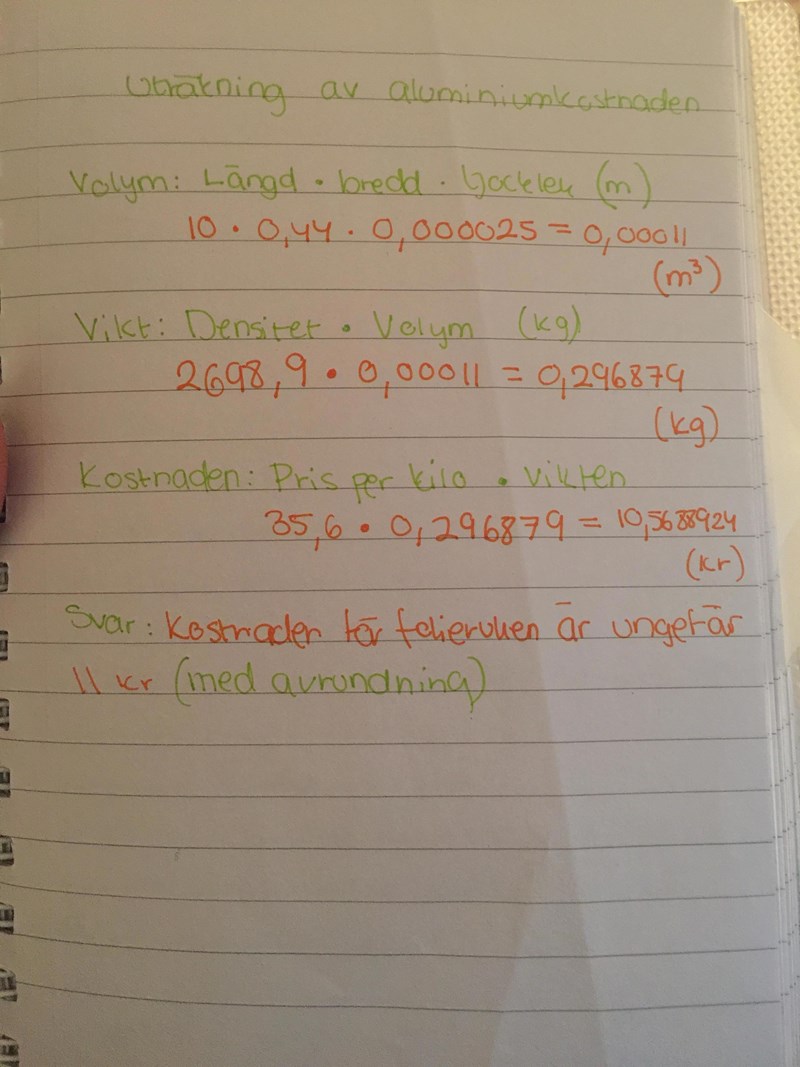 Uträkning av aluminiumkostnaden
Volym: Längd · bredd · tjocklek (m)
10 · 0,44 · 0,000025 = 0,00011
(m³)
Vikt: Densitet · Volym (kg)
2698,9 · 0,00011 = 0,296879
(kg)
Kostnaden: Pris per kilo · vikten
35,6 · 0,296879 = 10,5688924
(kr)
Svar: Kostnaden för folierullen är ungefär
11 kr (med avrundning)